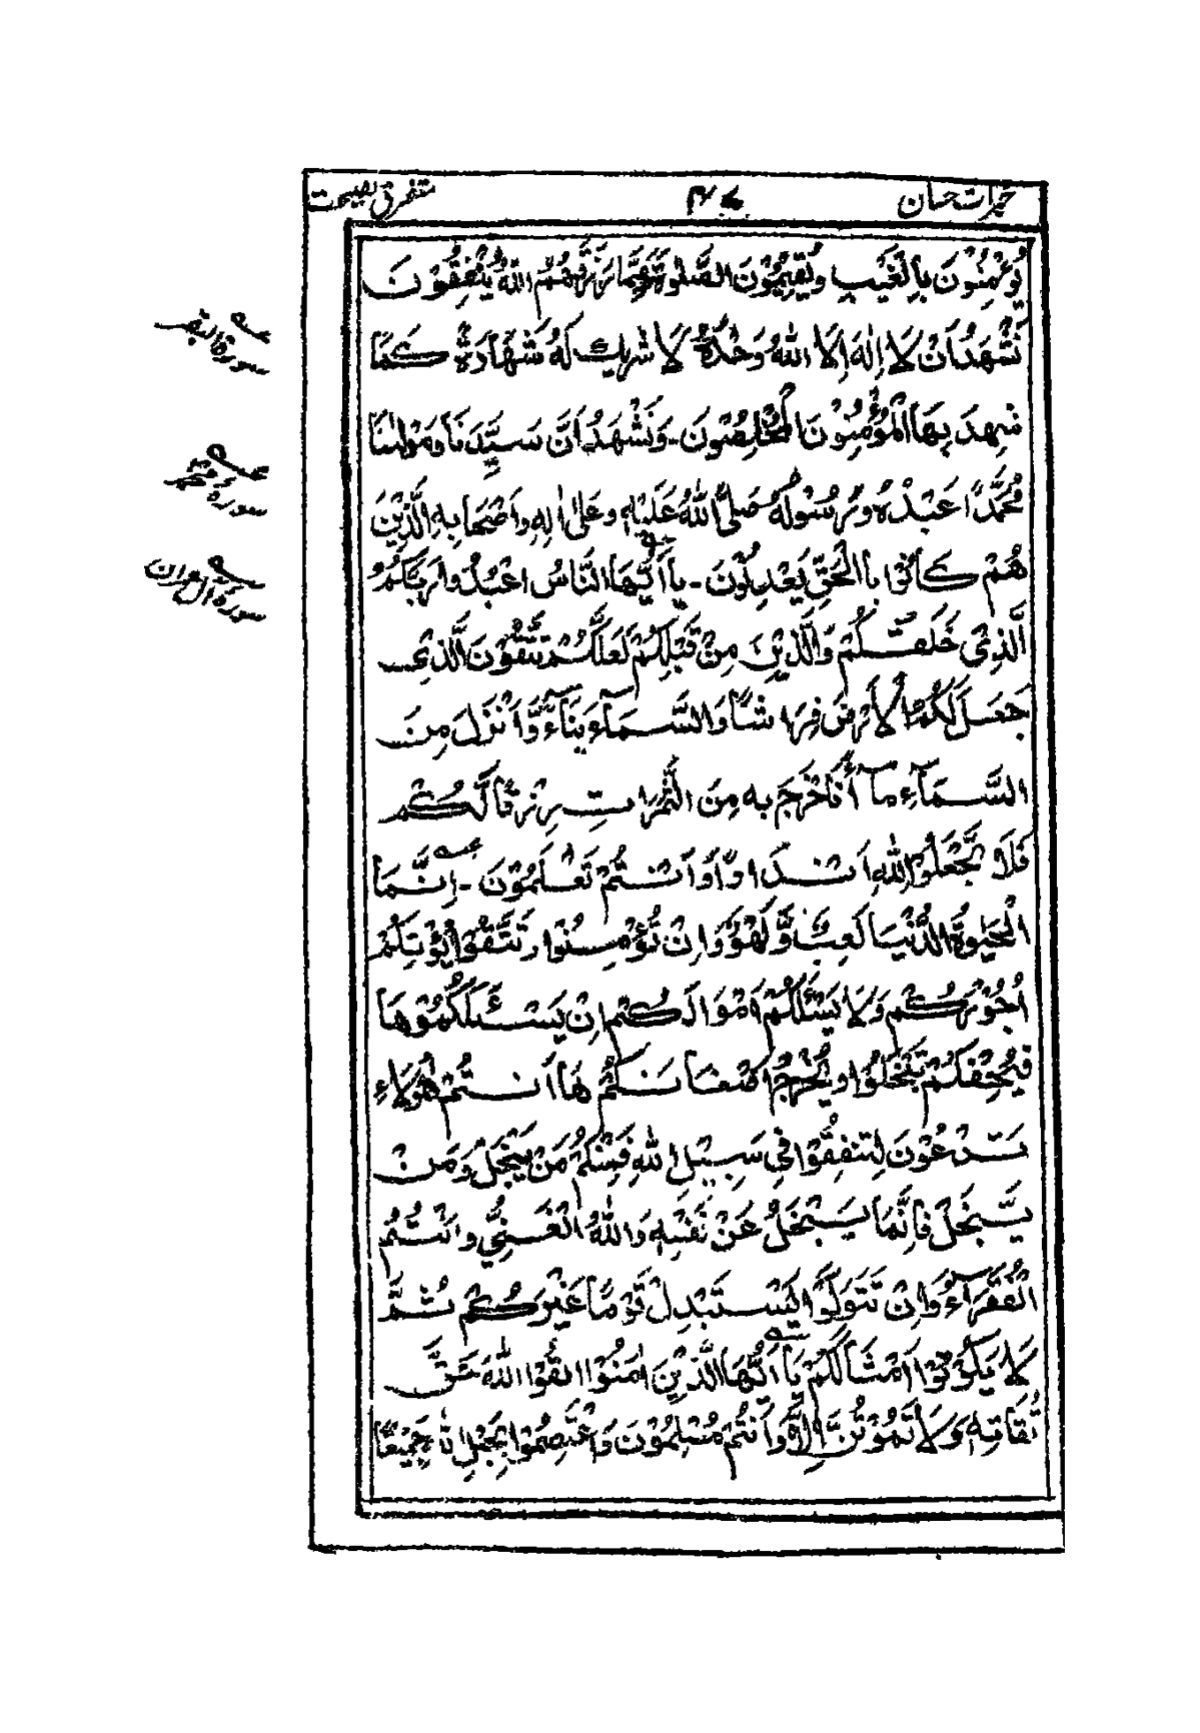 خیرات حسان
متفرق نصیحت
یُؤْمِنُوْنَ بِالْغَیْبِ وَیُقِیْمُوْنَ الصَّلٰوةَ وَمِمَّا رَزَقَهُمُ اللّٰهُ یُنْفِقُوْنَ
نَشْهَدُ اَنْ لَا اِلٰهَ اِلَّا اللّٰهُ وَحْدَهٗ لَا شَرِیْكَ لَهٗ شَهَادَةً كَمَا
شَهِدَ بِهَا الْمُؤْمِنُوْنَ الْمُخْلِصُوْنَ - وَنَشْهَدُ اَنَّ سَیِّدَنَا وَمَوْلٰنَا
مُحَمَّدًا عَبْدُهٗ وَرَسُوْلُهٗ صَلَّی اللّٰهُ عَلَیْهِ وَعَلٰی اٰلِهٖ وَاَصْحَابِهِ الَّذِیْنَ
هُمْ كَانُوْا بِالْحَقِّ یَعْدِلُوْنَ - یَا اَیُّهَا النَّاسُ اعْبُدُوْا رَبَّكُمُ
الَّذِیْ خَلَقَكُمْ وَالَّذِیْنَ مِنْ قَبْلِكُمْ لَعَلَّكُمْ تَتَّقُوْنَ الَّذِیْ
جَعَلَ لَكُمُ الْاَرْضَ فِرَاشًا وَالسَّمَآءَ بِنَآءً وَّاَنْزَلَ مِنَ
السَّمَآءِ مَآءً فَاَخْرَجَ بِهٖ مِنَ الثَّمَرَاتِ رِزْقًا لَّكُمْ
فَلَا تَجْعَلُوْا لِلّٰهِ اَنْدَادًا وَّاَنْتُمْ تَعْلَمُوْنَ - اِنَّمَا
الْحَیٰوةُ الدُّنْیَا لَعِبٌ وَّلَهْوٌ وَاِنْ تُؤْمِنُوْا وَتَتَّقُوْا یُؤْتِكُمْ
اُجُوْرَكُمْ وَلَا یَسْئَلْكُمْ اَمْوَالَكُمْ اِنْ یَسْئَلْكُمُوْهَا
فَیُحْفِكُمْ تَبْخَلُوْا وَیُخْرِجْ اَضْغَانَكُمْ هَا اَنْتُمْ هٰؤُلَاءِ
تَدْعُوْنَ لِتُنْفِقُوْا فِیْ سَبِیْلِ اللّٰهِ فَمِنْكُمْ مَنْ یَبْخَلُ وَمَنْ
یَّبْخَلْ فَاِنَّمَا یَبْخَلُ عَنْ نَفْسِهٖ وَاللّٰهُ الْغَنِیُّ وَاَنْتُمُ
الْفُقَرَآءُ وَاِنْ تَتَوَلَّوْا یَسْتَبْدِلْ قَوْمًا غَیْرَكُمْ ثُمَّ
لَا یَكُوْنُوْا اَمْثَالَكُمْ یَا اَیُّهَا الَّذِیْنَ اٰمَنُوْا اتَّقُوْا اللّٰهَ حَقَّ
تُقَاتِهٖ وَلَا تَمُوْتُنَّ اِلَّا وَاَنْتُمْ مُسْلِمُوْنَ وَاعْتَصِمُوْا بِحَبْلِ اللّٰهِ جَمِیْعًا
سورة البقر
سورہ محمد
سورہ آل عمران